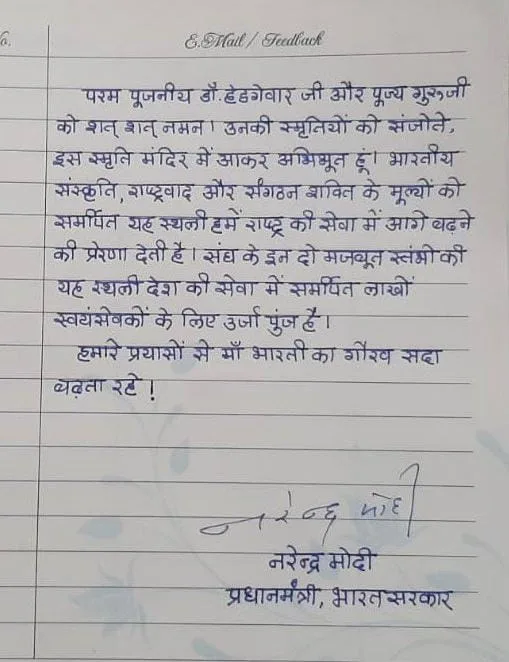 o.
E.Mail / Feedback
परम पूजनीय डॉ. हेडगेवार जी और पूज्य गुरुजी
को शत् शत् नमन। उनकी स्मृतियों को संजोते,
इस स्मृति मंदिर में आकर अभिभूत हूं। भारतीय
संस्कृति, राष्ट्रवाद और संगठन शक्ति के मूल्यों को
समर्पित यह स्थली हमें राष्ट्र की सेवा में आगे बढ़ने
की प्रेरणा देती है। संघ के इन दो मजबूत स्तंभों की
यह स्थली देश की सेवा में समर्पित लाखों
स्वयंसेवकों के लिए उर्जा पुंज है।
हमारे प्रयासों से माँ भारती का गौरव सदा
बढ़ता रहे!
नरेन्द्र मोदी
नरेन्द्र मोदी
प्रधानमंत्री, भारत सरकार